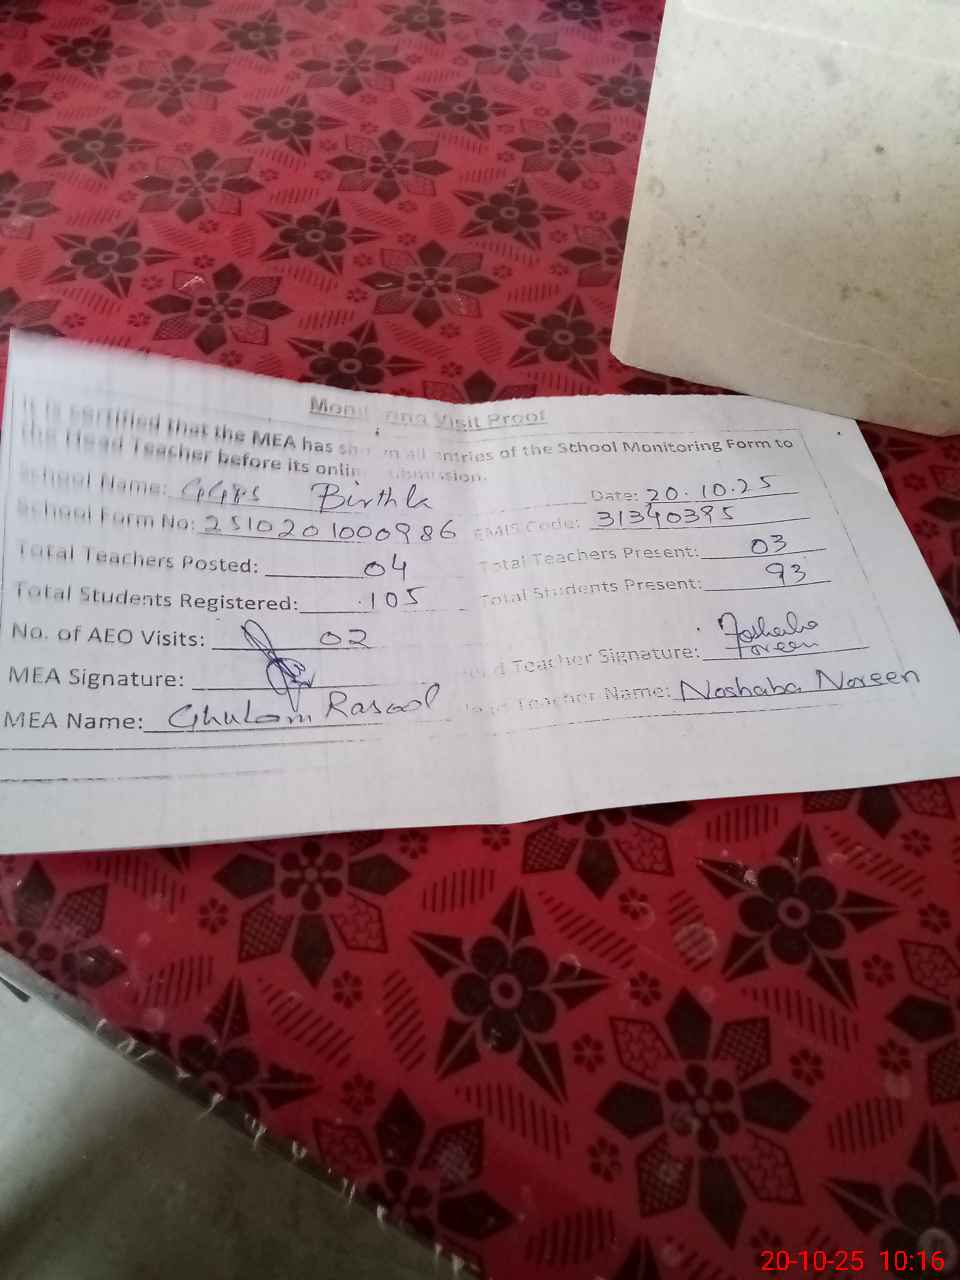 Monitoring Visit Proof
It is certified that the MEA has shown all entries of the School Monitoring Form to
the Head Teacher before its online submission.
School Name: GGPS Birthla Date: 20.10.25
School Form No: 2510201000986 EMIS Code: 31340395
Total Teachers Posted: 04 Total Teachers Present: 03
Total Students Registered: 105 Total Students Present: 93
No. of AEO Visits: 02
MEA Signature: Head Teacher Signature: Noshaba Noreen
MEA Name: Ghulam Rasool Head Teacher Name: Noshaba Noreen
20-10-25 10:16